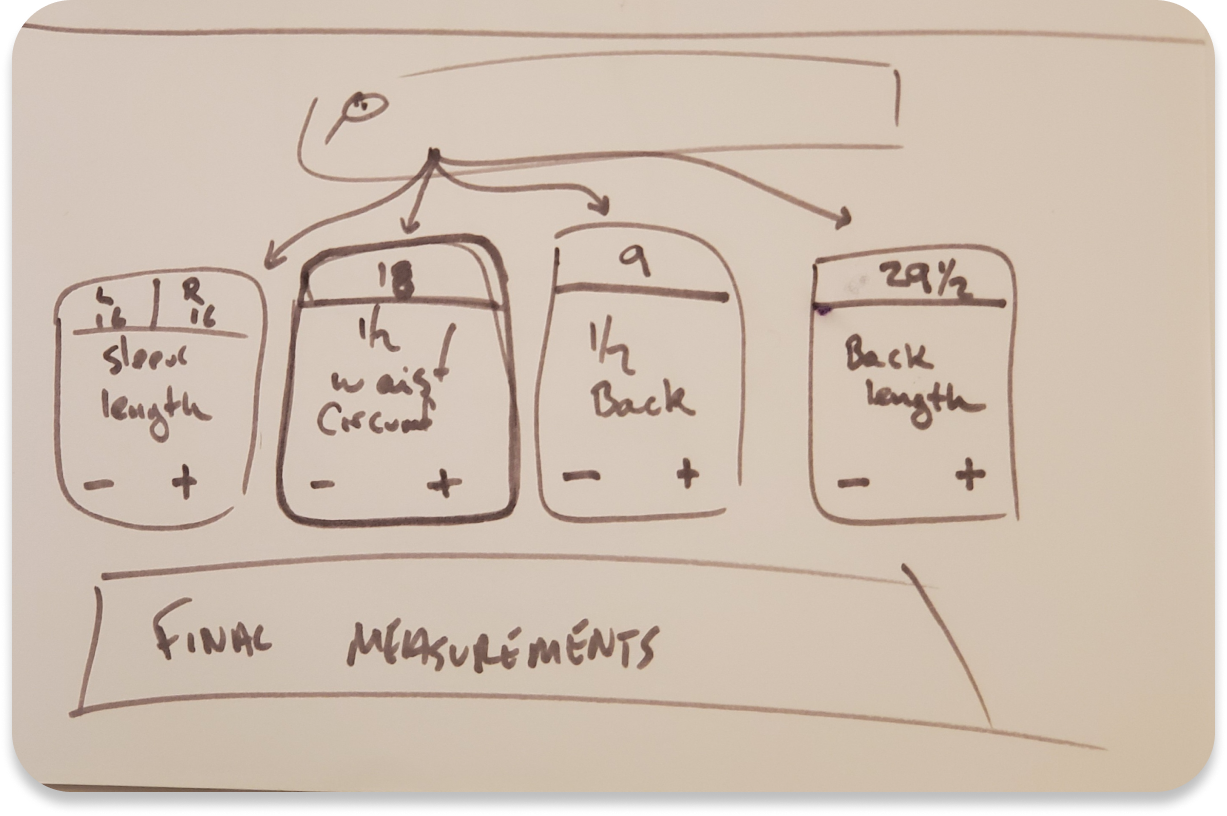 L | R
16 | 16
sleeve
length
- +
18
1/2
waist
Circum
- +
9
1/2
Back
- +
29 1/2
Back
length
- +
FINAL MEASUREMENTS